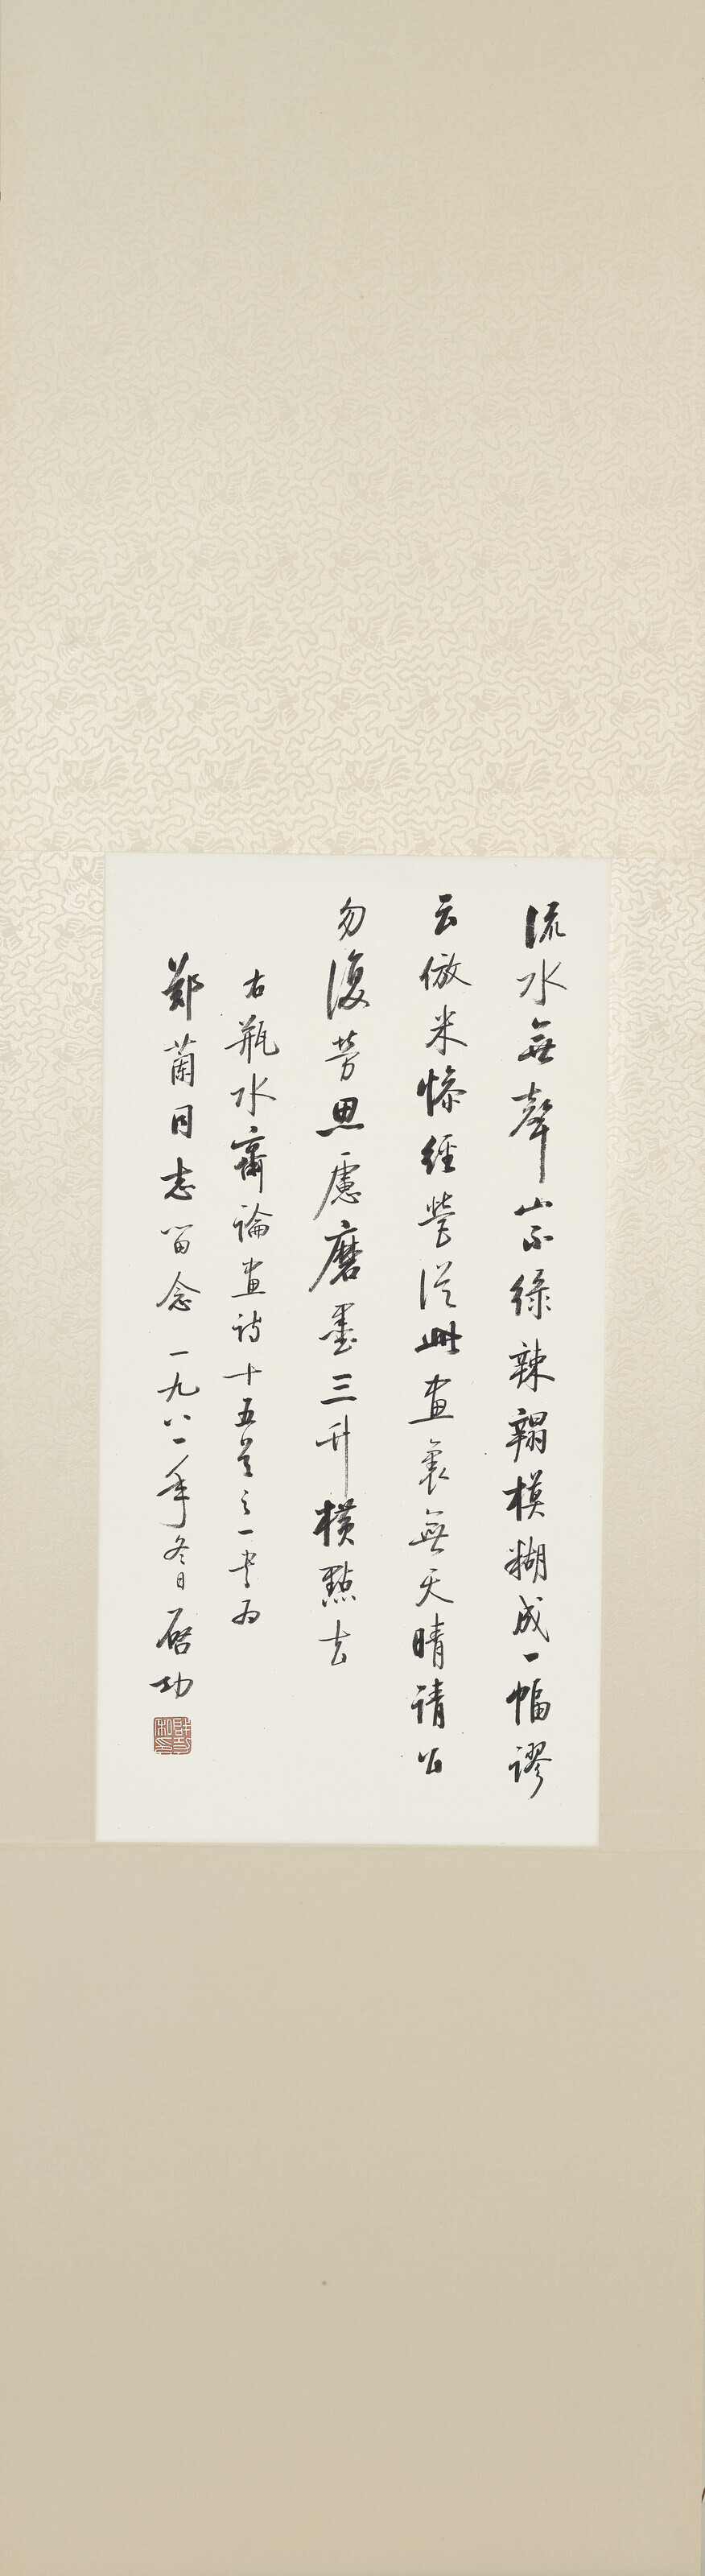 流水無聲山不綠辣模糊成一幅謬
云倣米慘經營從此畫裏無天晴請公
勿復勞思慮磨墨三升橫點去
右瓶水齋論畫詩十五首之一書為
鄭蘭同志留念一九八一年冬日啓功
啟功私印